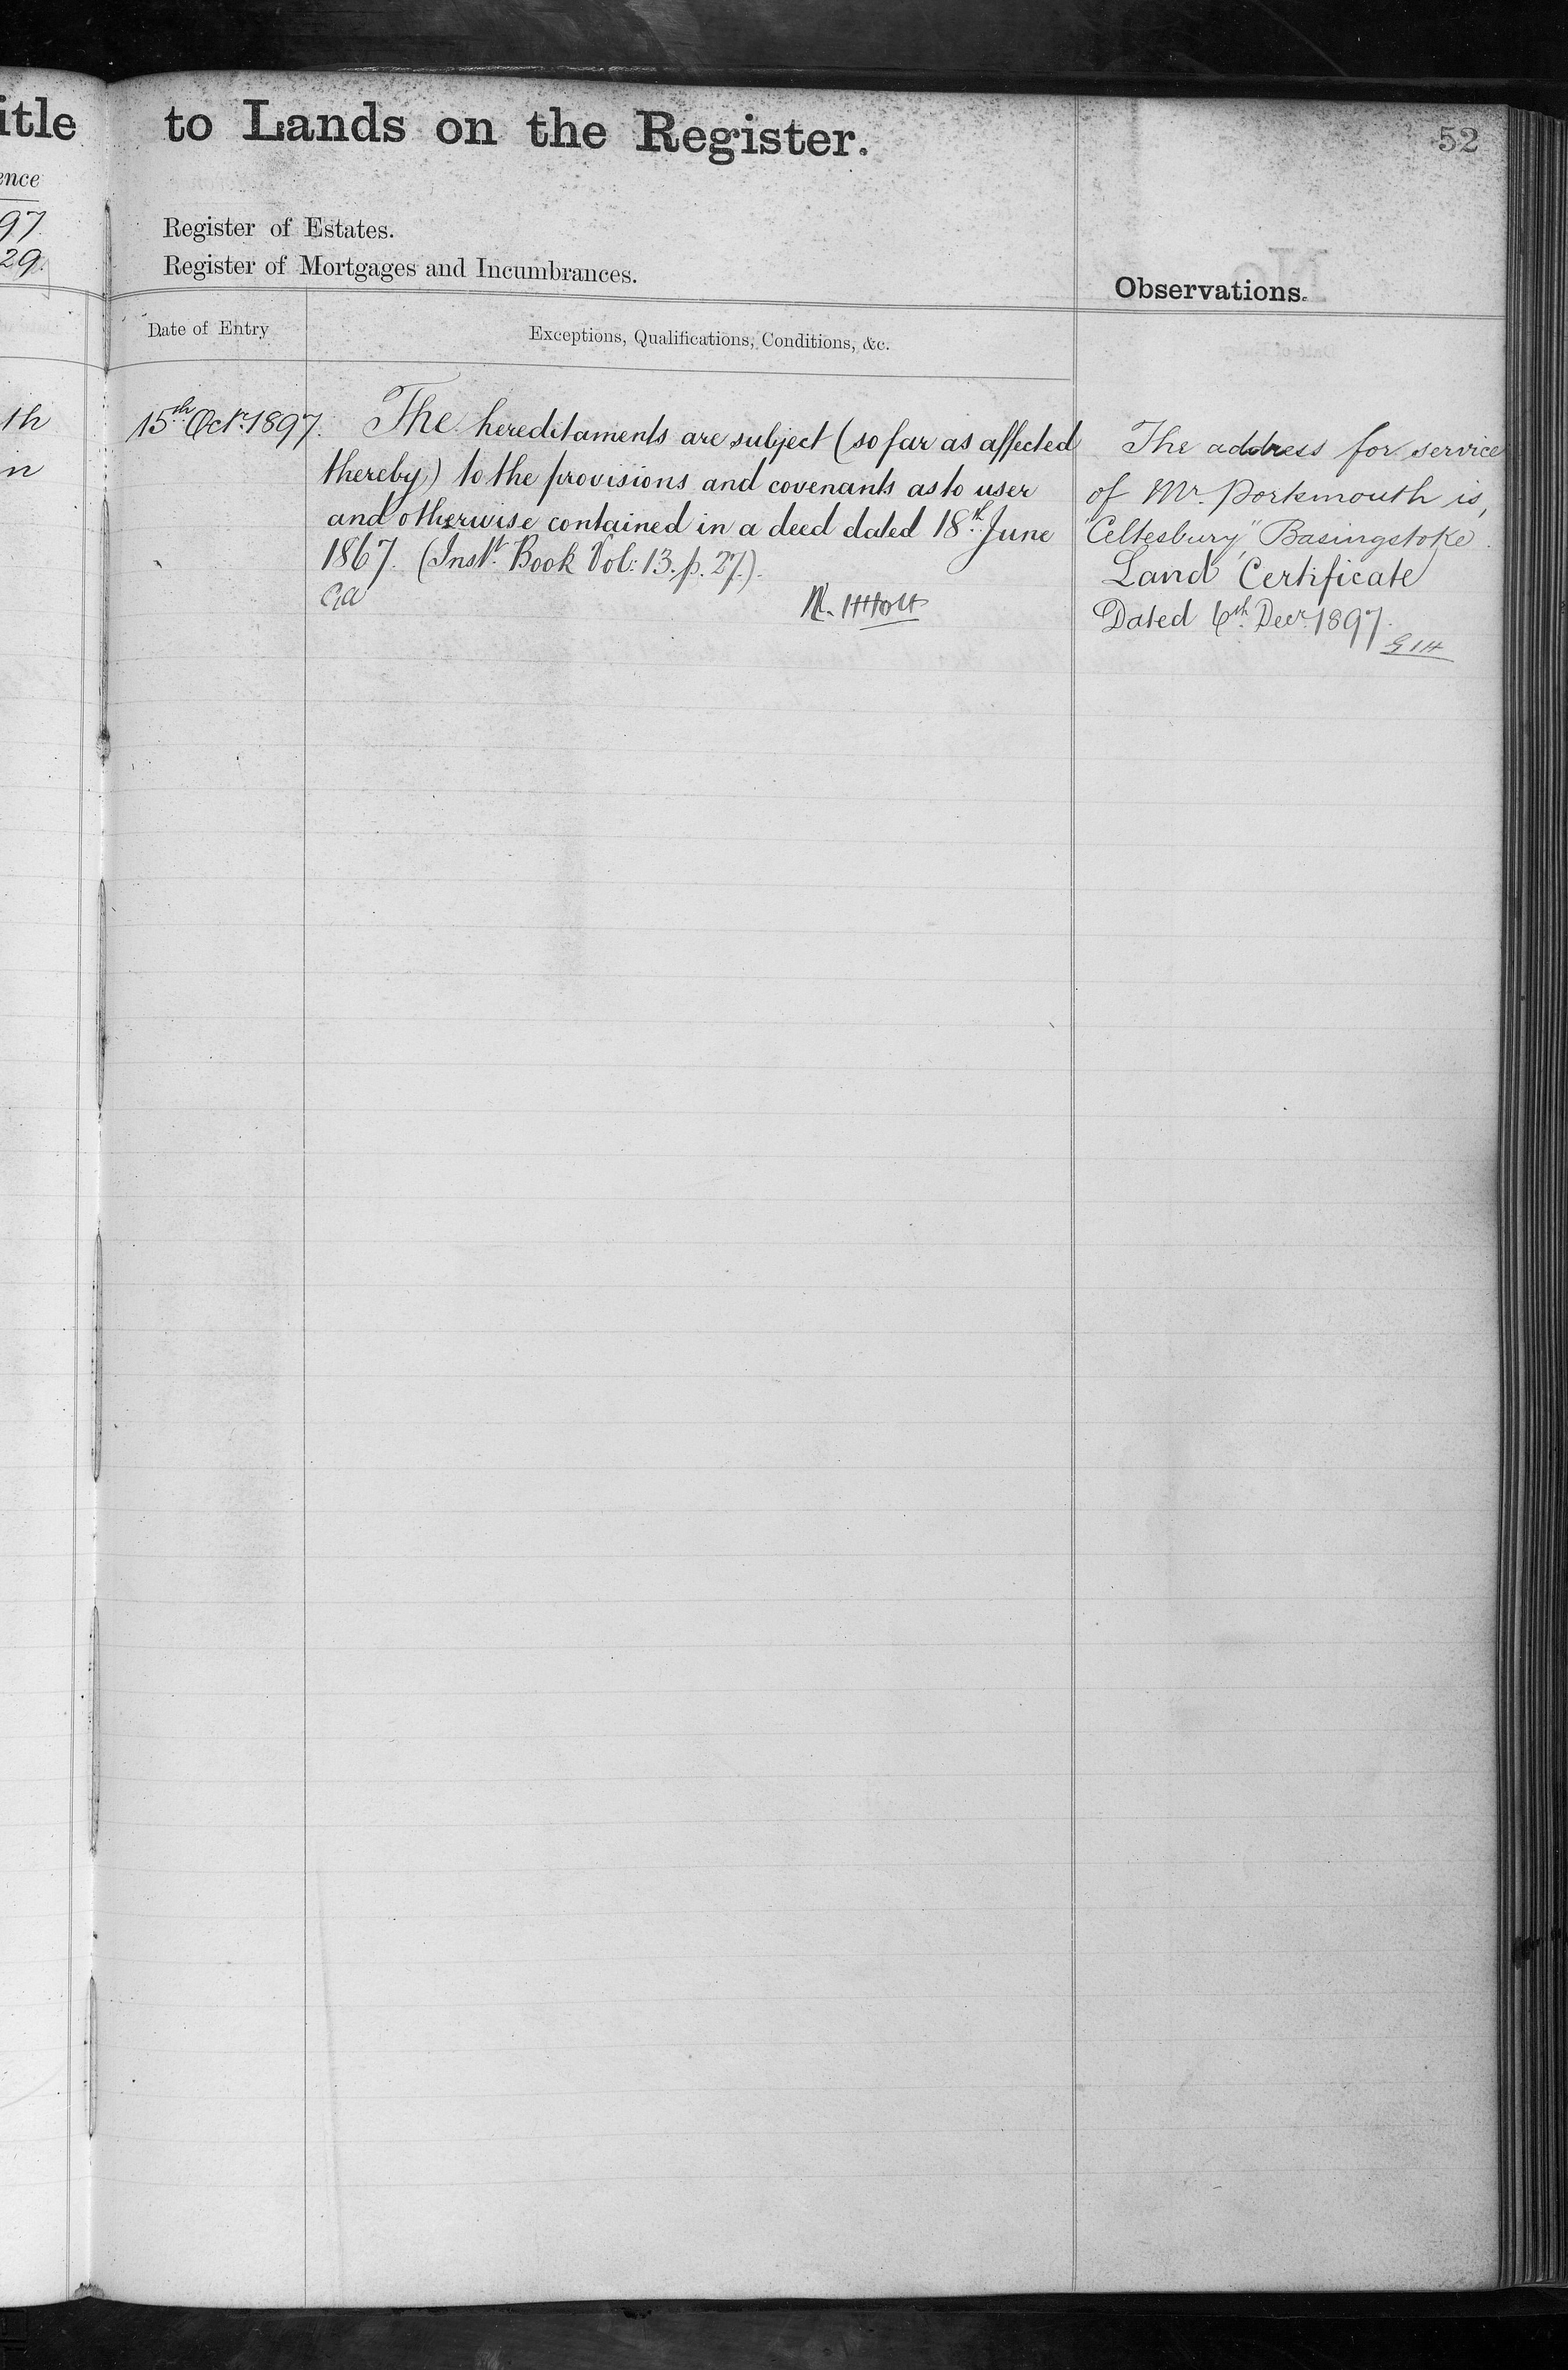 itle to Lands on the Register.
52
ence
97.
29.
Register of Estates.
Register of Mortgages and Incumbrances.
Observations.
Date of Entry
Exceptions, Qualifications, Conditions, &c.
th
in
15th Octr. 1897.
The hereditaments are subject (so far as affected
thereby) to the provisions and covenants as to user
and otherwise contained in a deed dated 18th June
1867. (Instt. Book Vol: 13. p. 27.).
The address for service
of Mr. Portsmouth is,
"Celtesbury," Basingstoke.
Land Certificate
Dated 6th Decr. 1897.